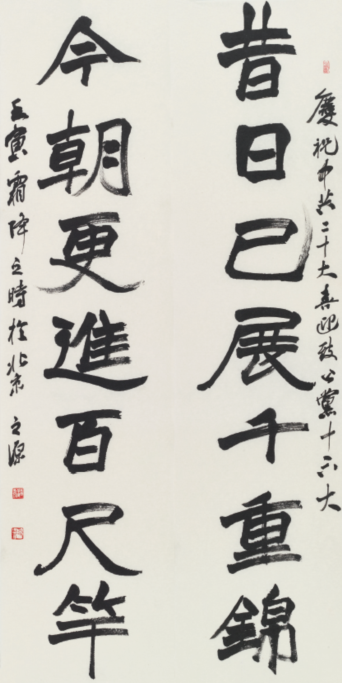 慶祝中共二十大喜迎致公黨十六大
昔日已展千重錦
今朝更進百尺竿
壬寅霜降之時於北京